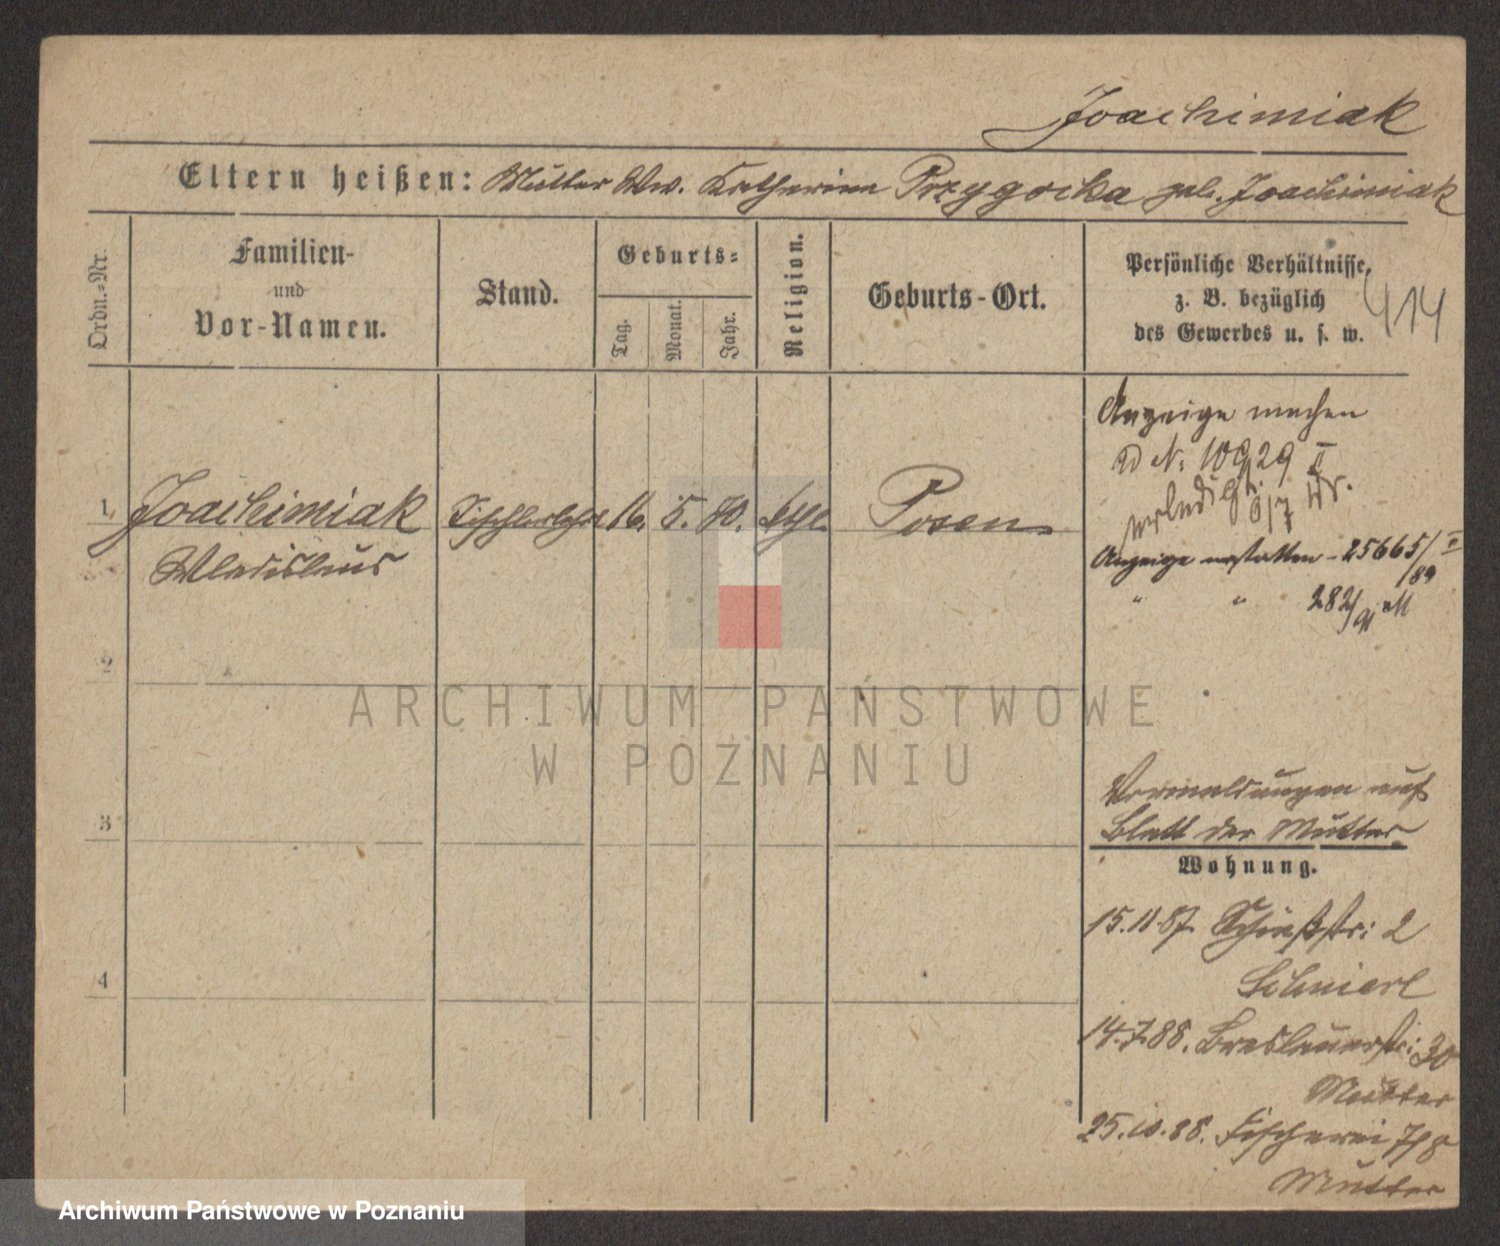 Joachimiak
Eltern heißen: Mutter Ww. Katharina Przygocka geb. Joachimiak
Ordn.-Nr.
Familien-
und
Vor-Namen.
Stand.
Geburts-
Tag.
Monat.
Jahr.
Religion.
Geburts-Ort.
Persönliche Verhältnisse,
z. B. bezüglich
des Gewerbes u. s. w.
414
Anzeige machen
ad N: 10929 II
erledigt.
6/7
1. Joachimiak Tischlerlehrl 16. 5. Posen
Wladislaus
Anzeige erstatten - 25665/II
/89
" " 282/91
2
ARCHIWUM PAŃSTWOWE
W POZNANIU
3
Vormeldungen auf
Blatt der Mutter
Wohnung.
15.11.87 Schießstr: 2
4
14.7.88. Breslauerstr: 30
Mutter
25.10.88. Fischerei 7/8
Mutter
Archiwum Państwowe w Poznaniu